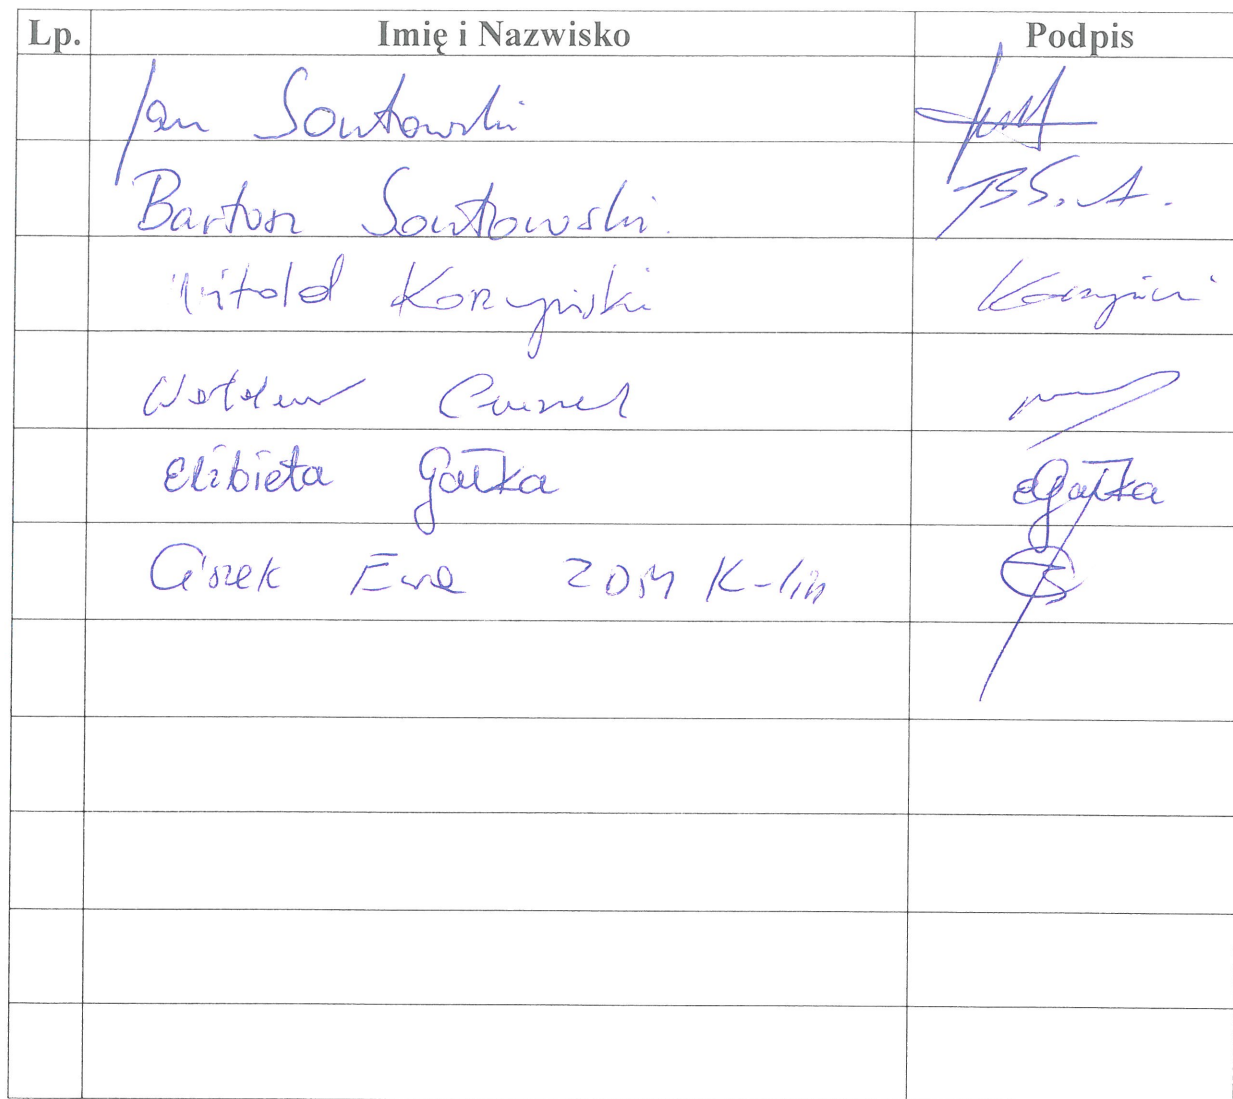 Lp. Imię i Nazwisko Podpis
Jan Sontowski
Bartosz Sontowski BS.
Witold Korzyński
Elżbieta Gałka EGałka
Ciszek Ewa ZDM K-lin